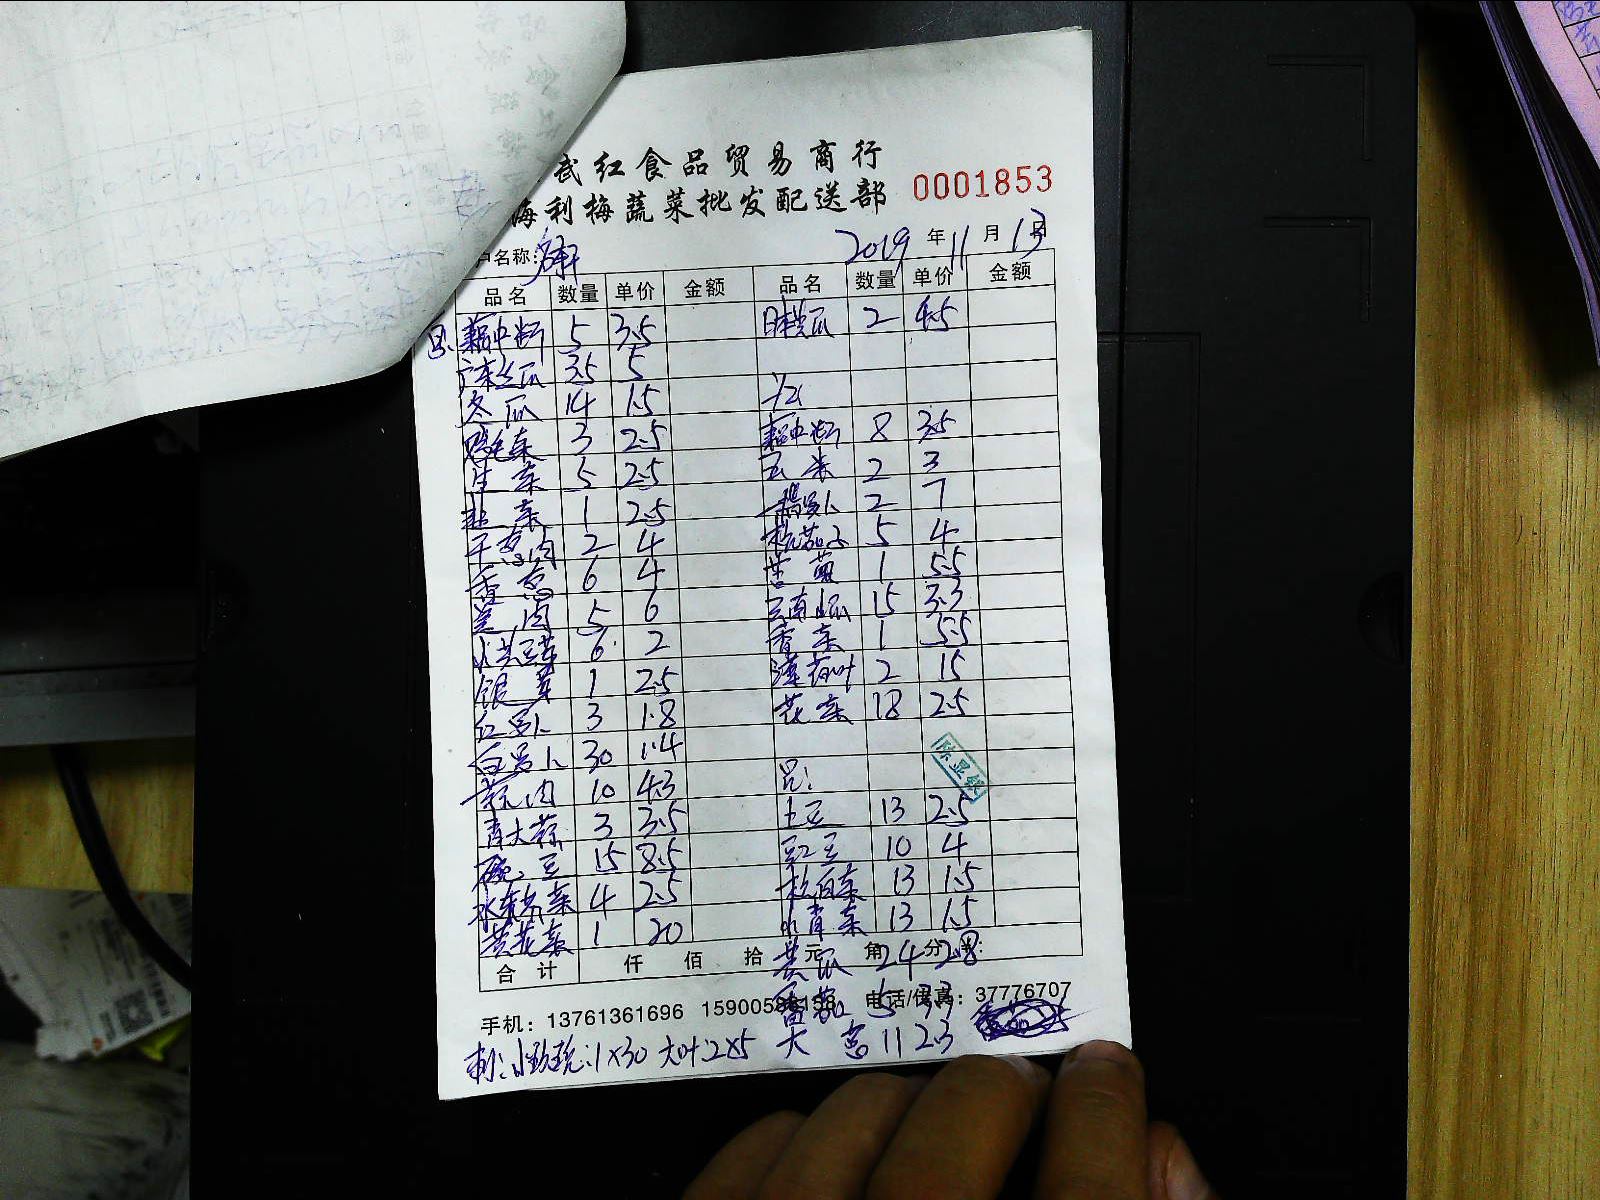 武红食品贸易商行
梅利梅蔬菜批发配送部
0001853
户名称:
2019 年 11 月 13 日
品名 数量 单价 金额 品名 数量 单价 金额
藕中断 5 3.5 日本黄瓜 2 4.5
广东丝瓜 3.5 5
冬瓜 14 1.5
鸡毛菜 3 2.5 藕中断 8 3.5
生菜 5 2.5 玉米 2 3
韭菜 1 2.5 2 7
干葱肉 2 4 杭茄子 5 4
香葱 6 4 1 5.5
姜肉 5 6 云南小瓜 15 3.3
小黄豆芽 6 2 香菜 1 5.5
银芽 1 2.5 薄荷叶 2 15
红萝卜 3 1.8 花菜 18 2.5
白萝卜 30 1.4
蒜肉 10 4.3 另:
青大蒜 3 3.5 土豆 13 2.5
豌豆 15 8.5 豇豆 10 4
水东芥菜 4 2.5 杭白菜 13 1.5
黄花菜 1 20 小青菜 13 1.5
合计 仟 佰 拾 元 角 分
黄瓜 24 2.8
手机: 13761361696 15900586158 电话/传真: 37776707
番茄 5 3.3
刺: 小玫瑰: 1×30 大叶: 2×5 大葱 11 2.3